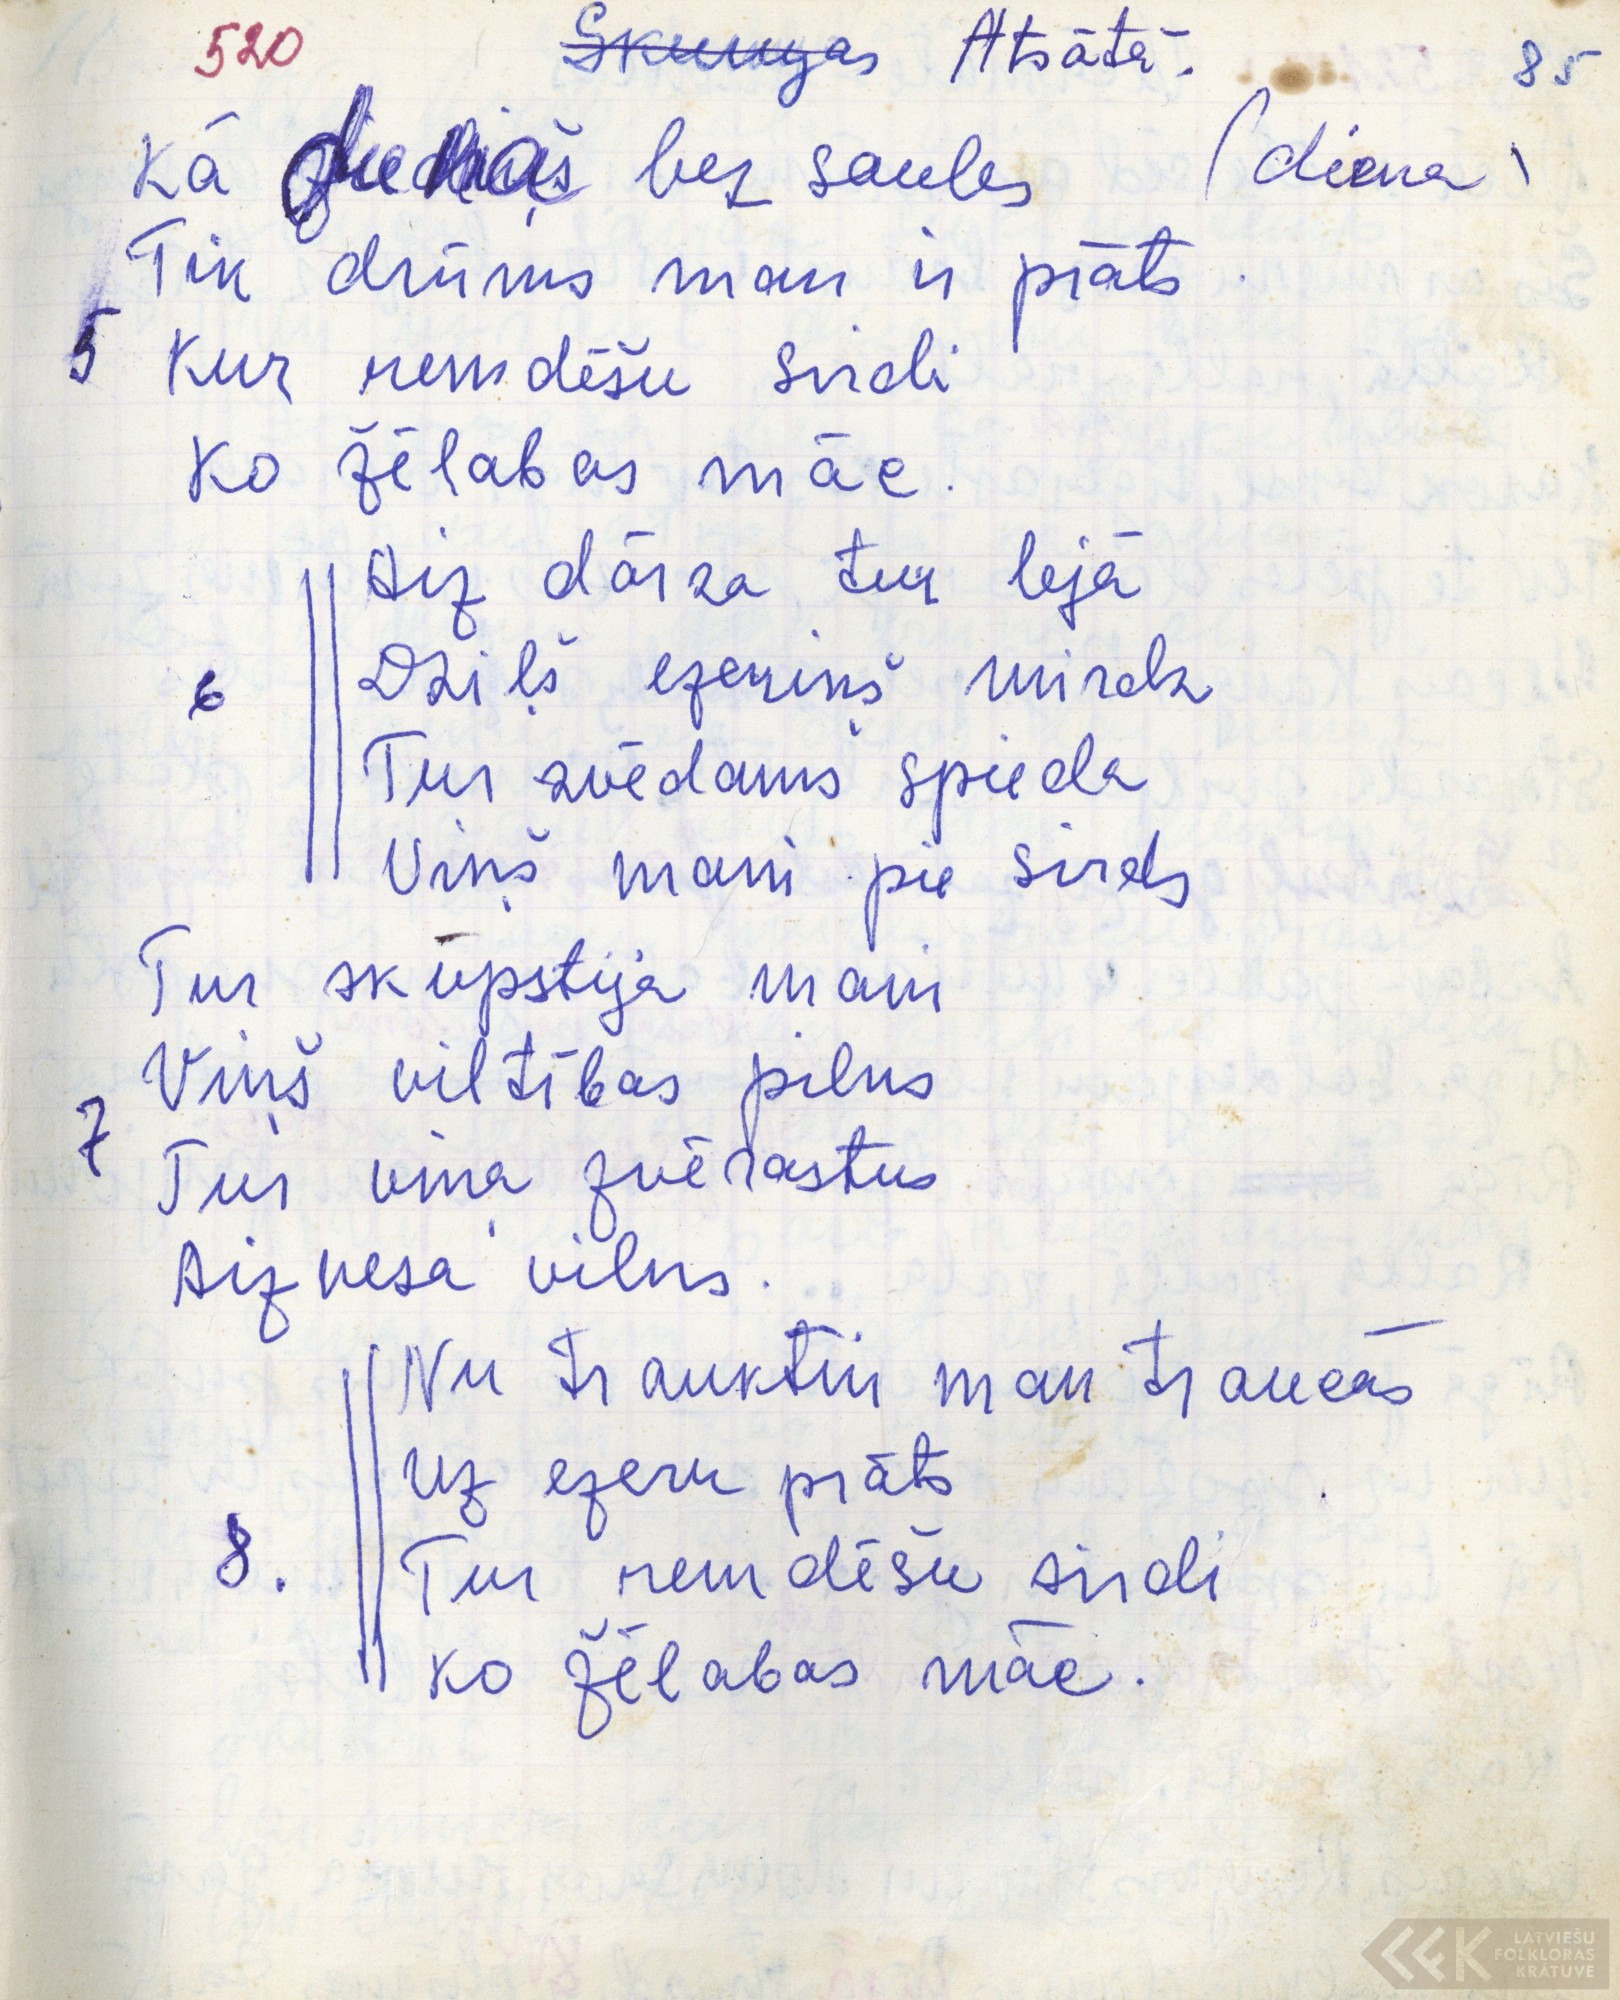 520 Skumgas Atsātā. 85
Kā bez saules (diena)
Tik drūms man ir prāts.
5 Kur remdēšu sirdi
Ko žēlabas māc.
Aiz dārza tur lejā
6 Dziļš ezeriņš mirdz
Tur zvēdams spieda
Viņš mani pie sirds
Tur skūpstija mani
Viņš viltības pilns
7 Tur viņa zvērastus
Aiznesa vilns.
Nu trauktin man traucās
Uz ezeru prāts
8. Tur remdēšu sirdi
Ko žēlabas māc.
LATVIEŠU
FOLKLORAS
KRĀTUVE